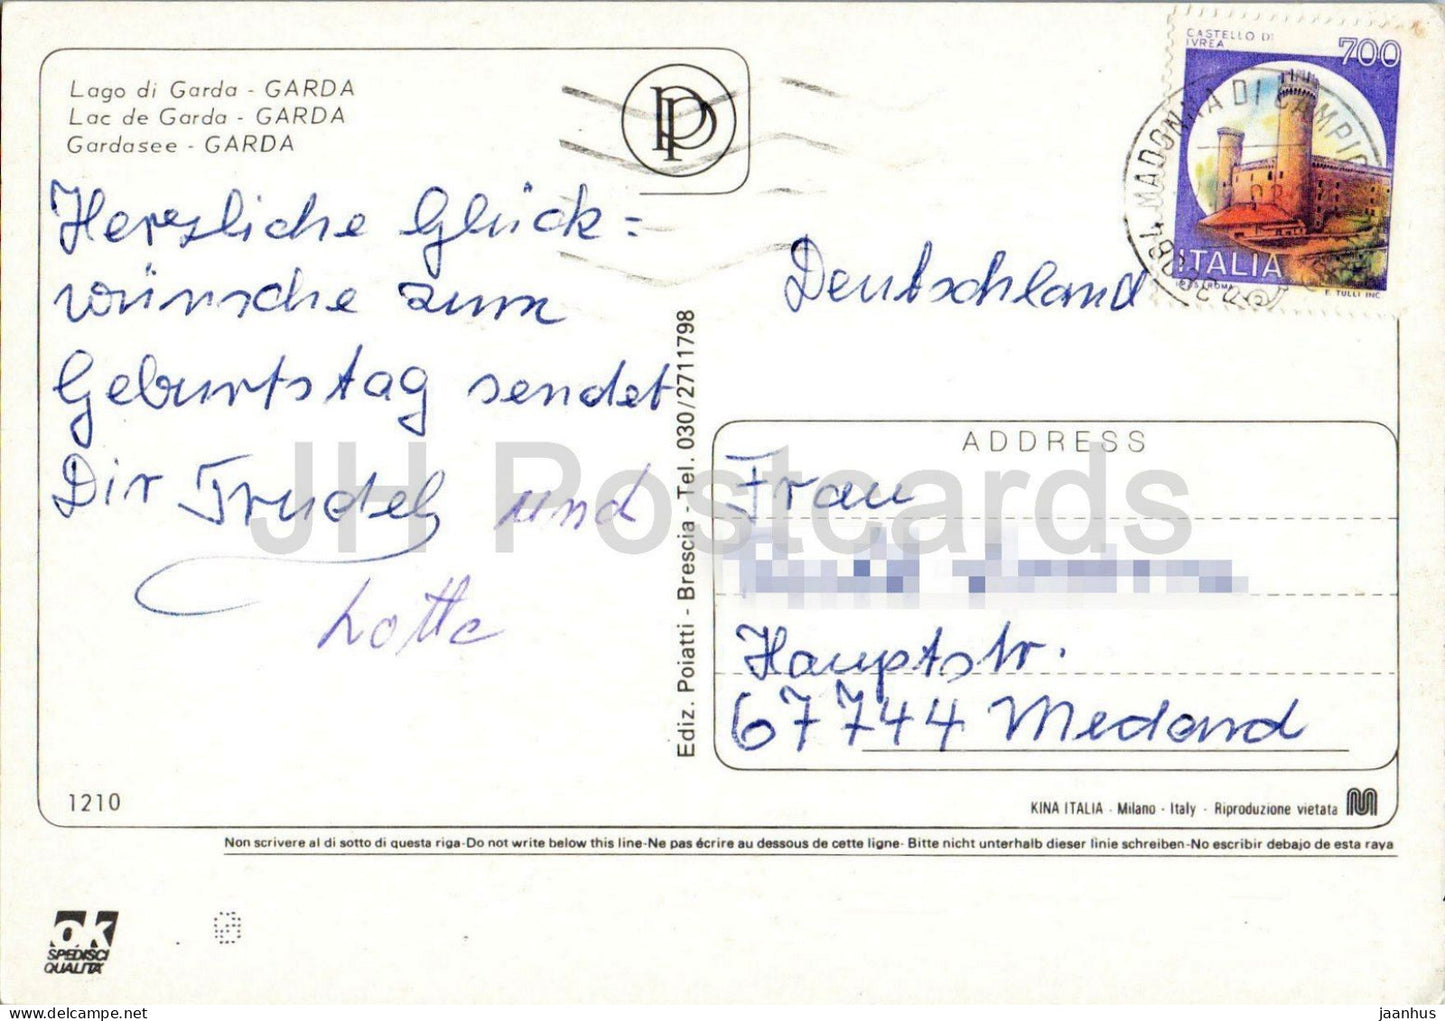 Lago di Garda - GARDA
Lac de Garda - GARDA
Gardasee - GARDA
PP
CASTELLO DI
IVREA
700
ITALIA
F. TULLI INC.
MADONNA DI CAMPIG
Herzliche Glück=
wünsche zum
Geburtstag sendet
Dir Trudel und
Lotte
Deutschland
Ediz. Poiatti - Brescia - Tel. 030/2711798
ADDRESS
Frau
Hauptstr.
67744 Medard
JH Postcards
1210
KINA ITALIA - Milano - Italy - Riproduzione vietata
Non scrivere al di sotto di questa riga-Do not write below this line-Ne pas écrire au dessous de cette ligne-Bitte nicht unterhalb dieser linie schreiben-No escribir debajo de esta raya
ok
SPEDISCI
QUALITÀ
jaanhus | delcampe.net